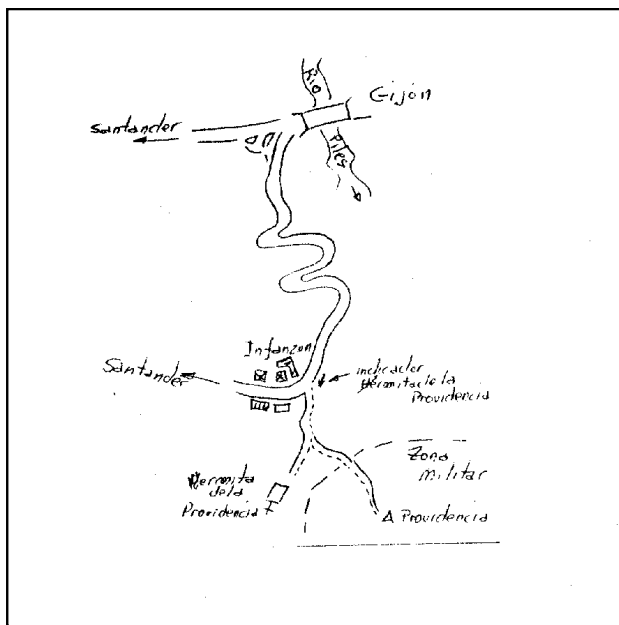 Rio
Gijón
Santander
Piles
Infanzon
Santander
indicador
Hermita de la
Providencia
Zona
Militar
Hermita
de la
Providencia
Providencia